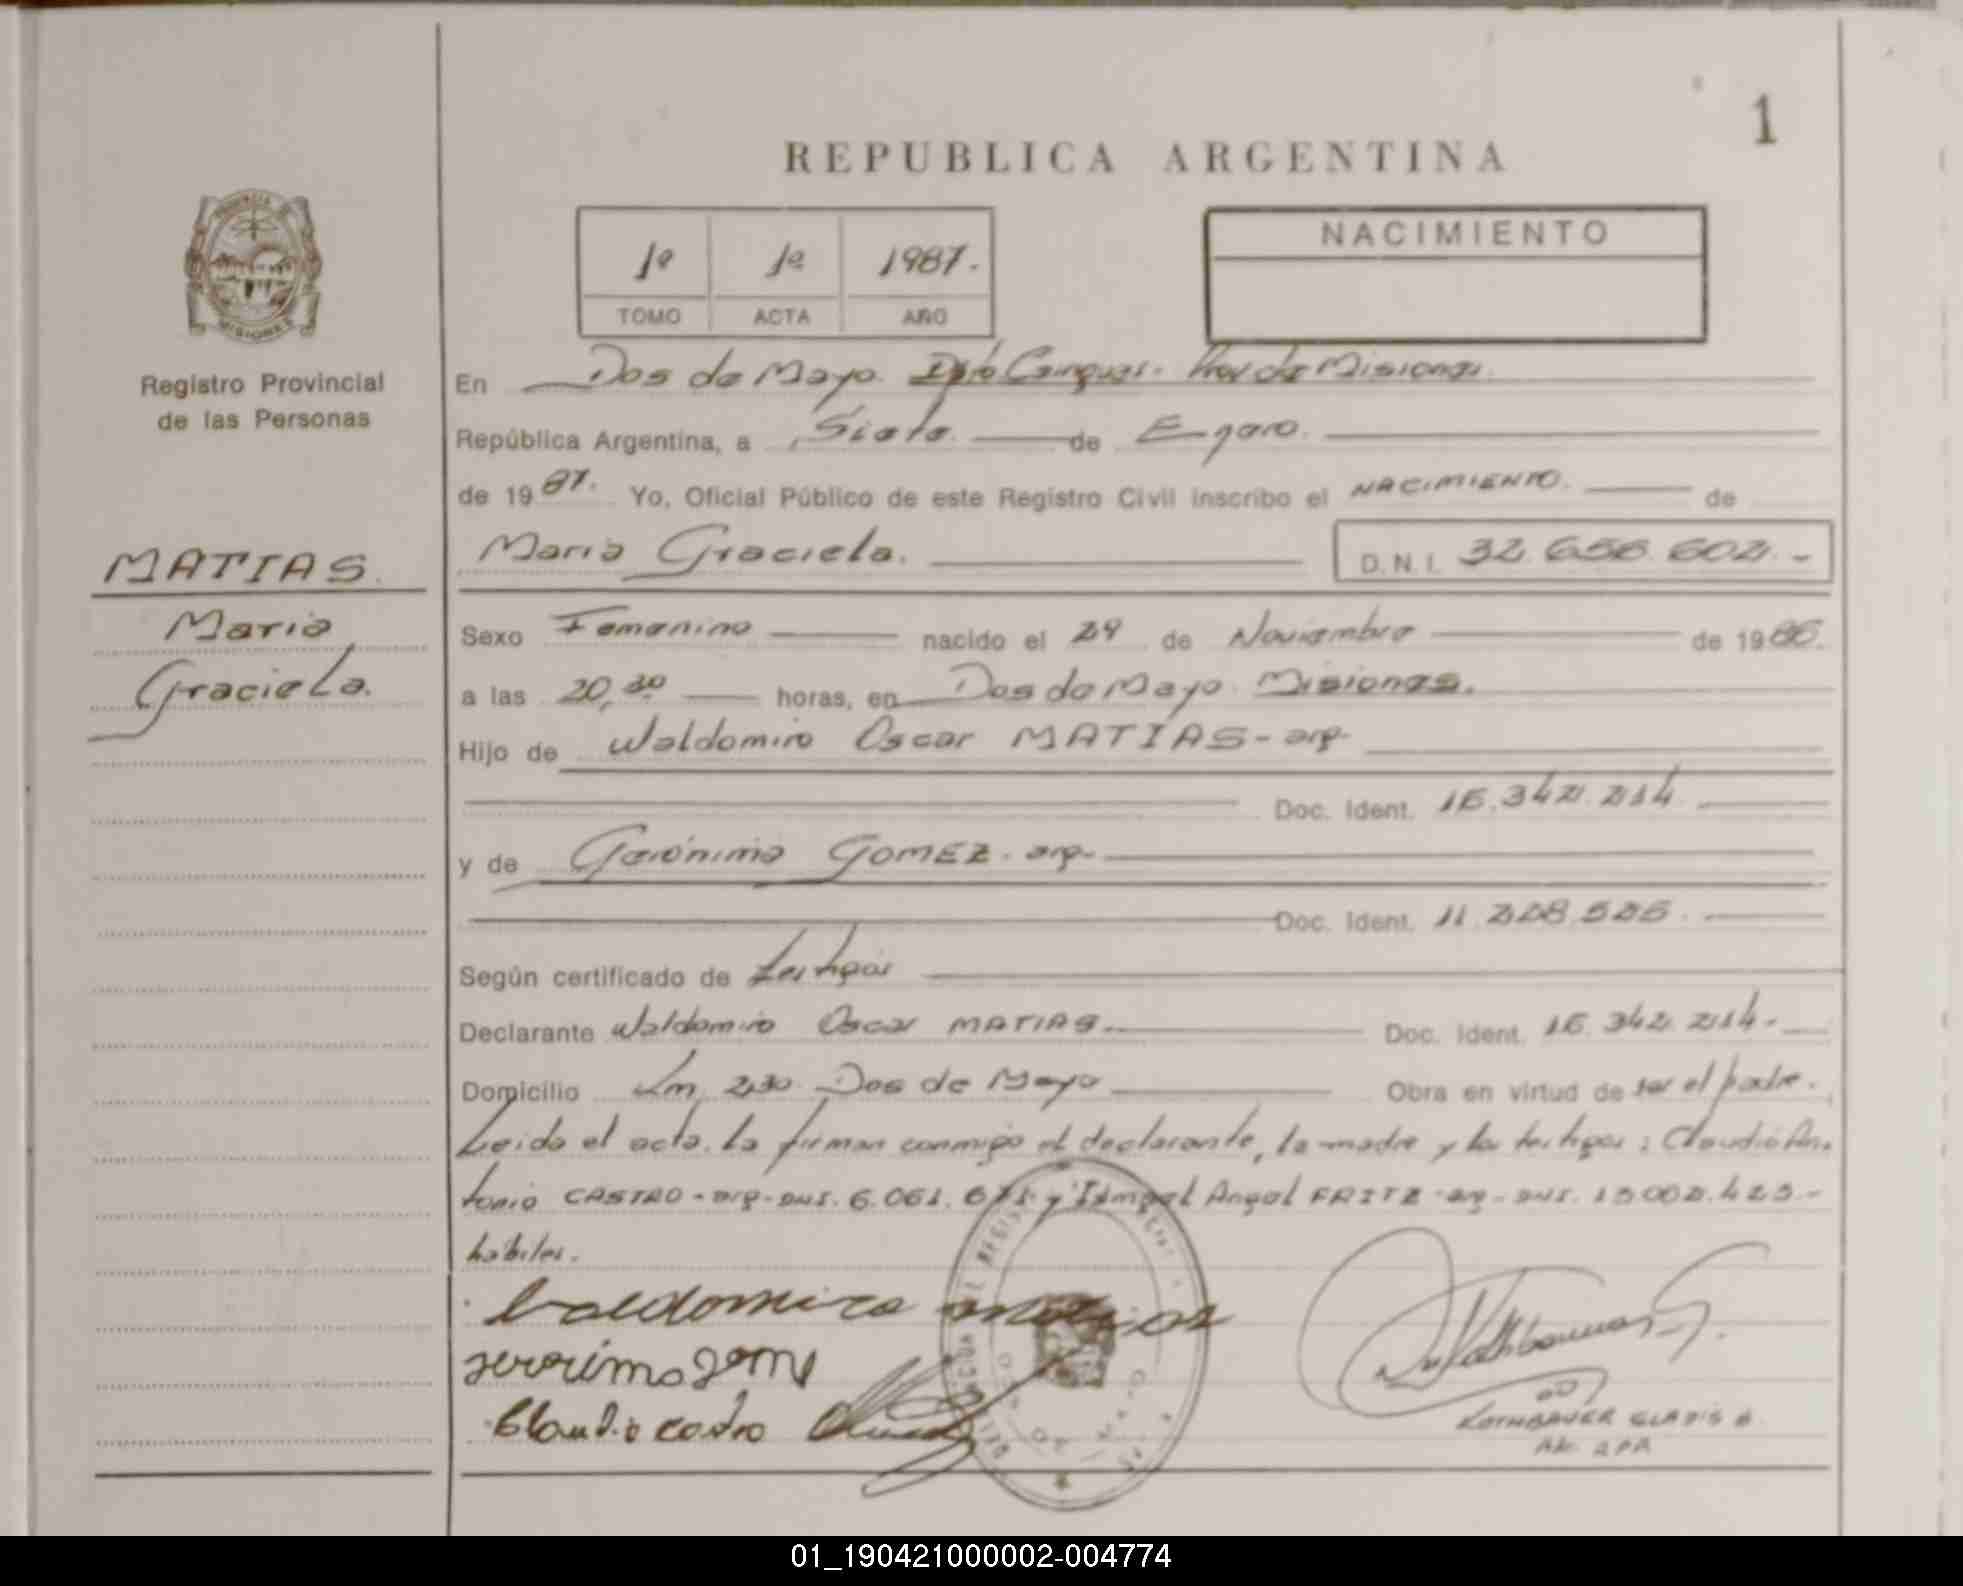 1
REPUBLICA ARGENTINA
PROVINCIA DE
MISIONES
Registro Provincial
de las Personas
1º 1º 1987.
TOMO ACTA AÑO
NACIMIENTO
En Dos de Mayo. Dpto Cainguas. Prov de Misiones.
República Argentina, a Siete. de Enero.
de 1987. Yo, Oficial Público de este Registro Civil inscribo el NACIMIENTO. de
MATIAS.
Maria
Graciela.
Maria Graciela. D.N.I. 32.656.602.-
Sexo Femenino nacido el 29 de Noviembre de 1986.
a las 20,30 horas, en Dos de Mayo. Misiones.
Hijo de Waldomiro Oscar MATIAS - arg-
Doc. Ident. 16.342.214.
y de Gerónima GOMEZ. arg-
Doc. Ident. 11.208.525.
Según certificado de testigos
Declarante Waldomiro Oscar MATIAS. Doc. Ident. 16.342.214.-
Domicilio Km, 230. Dos de Mayo Obra en virtud de ser el padre.
Leida el acta. La firman conmigo el declarante, la madre y los testigos: Claudio An-
tonio CASTRO - arg - DNI. 6.061.671. y Ismael Angel FRITZ - arg - DNI. 13.002.423.-
hábiles.
Waldomiro matias
jeronima gome
Claudio castro
KOTHBAUER GLADIS